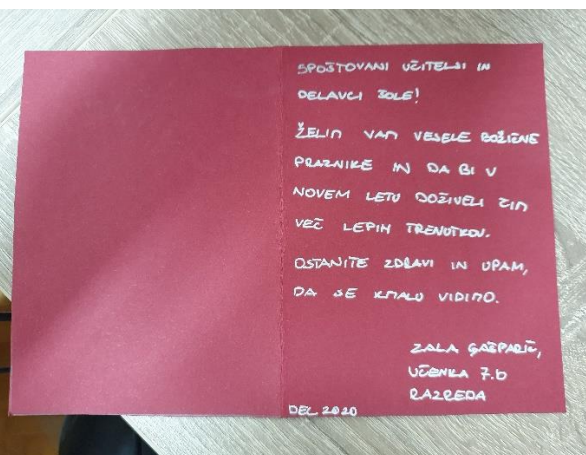 SPOŠTOVANI UČITELJI IN
DELAVCI ŠOLE!
ŽELIM VAM VESELE BOŽIČNE
PRAZNIKE IN DA BI V
NOVEM LETU DOŽIVELI ČIM
VEČ LEPIH TRENUTKOV.
OSTANITE ZDRAVI IN UPAM,
DA SE KMALU VIDIMO.
ZALA GAŠPARIČ,
UČENKA 7.b
RAZREDA
DEC 2020